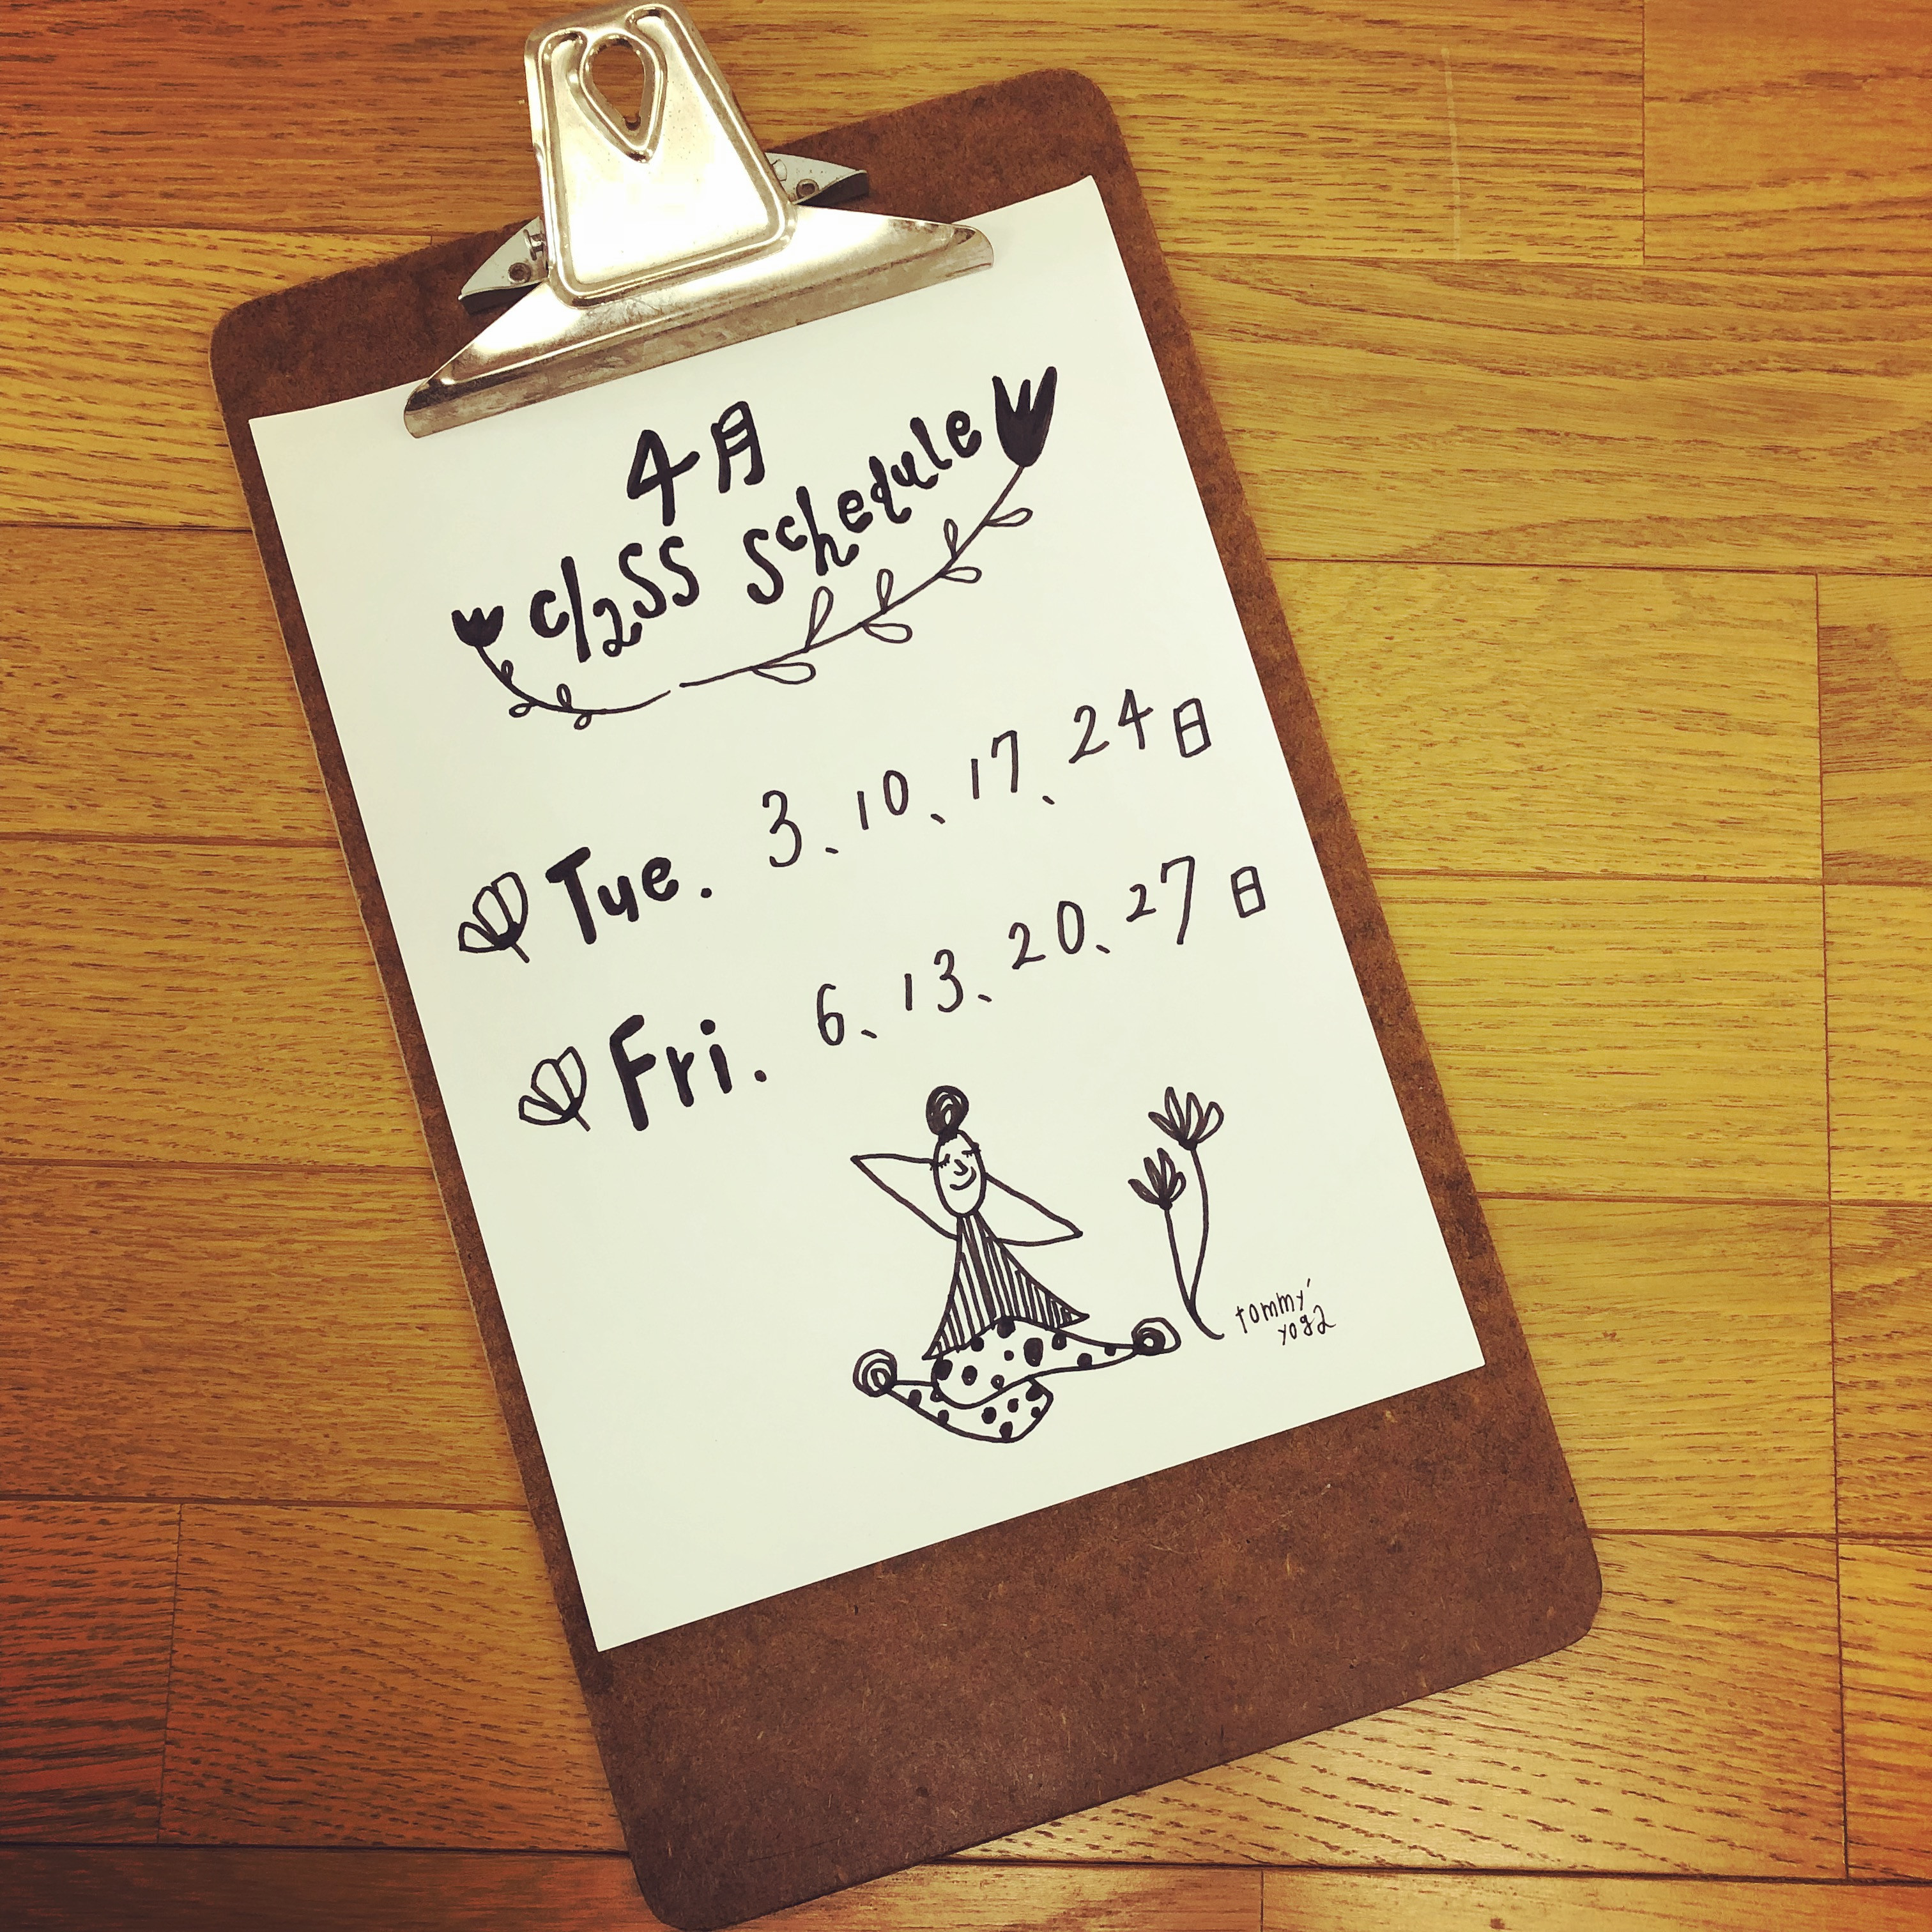 4月
class schedule
Tue. 3、10、17、24日
Fri. 6、13、20、27日
tommy'
yoga